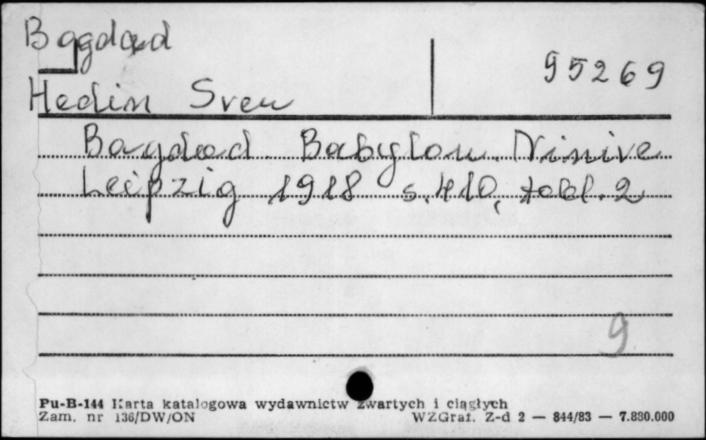 Bagdad
95269
Hedin Sven
Bagdad Babylon Ninive
Leipzig 1918 s. 410, tabl. 2
9
Pu-B-144 Karta katalogowa wydawnictw zwartych i ciągłych
Zam. nr 136/DW/ON WZGraf. Z-d 2 — 844/83 — 7.830.000